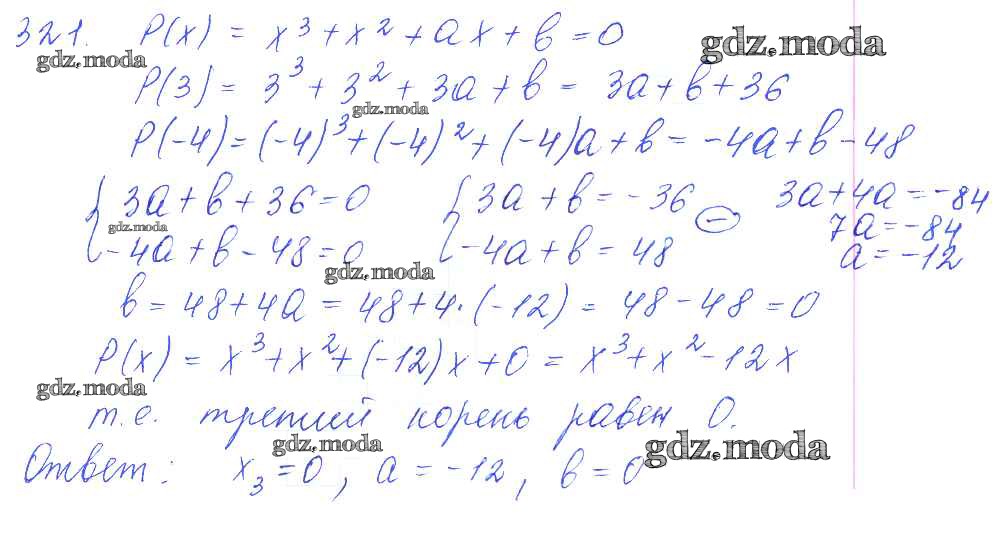 321. P(x) = x³ + x² + ax + b = 0
gdz.moda
gdz.moda
P(3) = 3³ + 3² + 3a + b = 3a + b + 36
gdz.moda
P(-4) = (-4)³ + (-4)² + (-4)a + b = -4a + b - 48
{ 3a + b + 36 = 0 { 3a + b = -36 (-) 3a + 4a = -84
gdz.moda
-4a + b - 48 = 0 -4a + b = 48 7a = -84
a = -12
gdz.moda
b = 48 + 4a = 48 + 4·(-12) = 48 - 48 = 0
P(x) = x³ + x² + (-12)x + 0 = x³ + x² - 12x
gdz.moda
т.е. третий корень равен 0.
gdz.moda
gdz.moda
Ответ: x₃ = 0, a = -12, b = 0